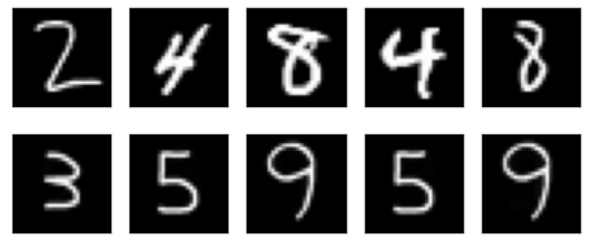 2 4 8 4 8
3 5 9 5 9